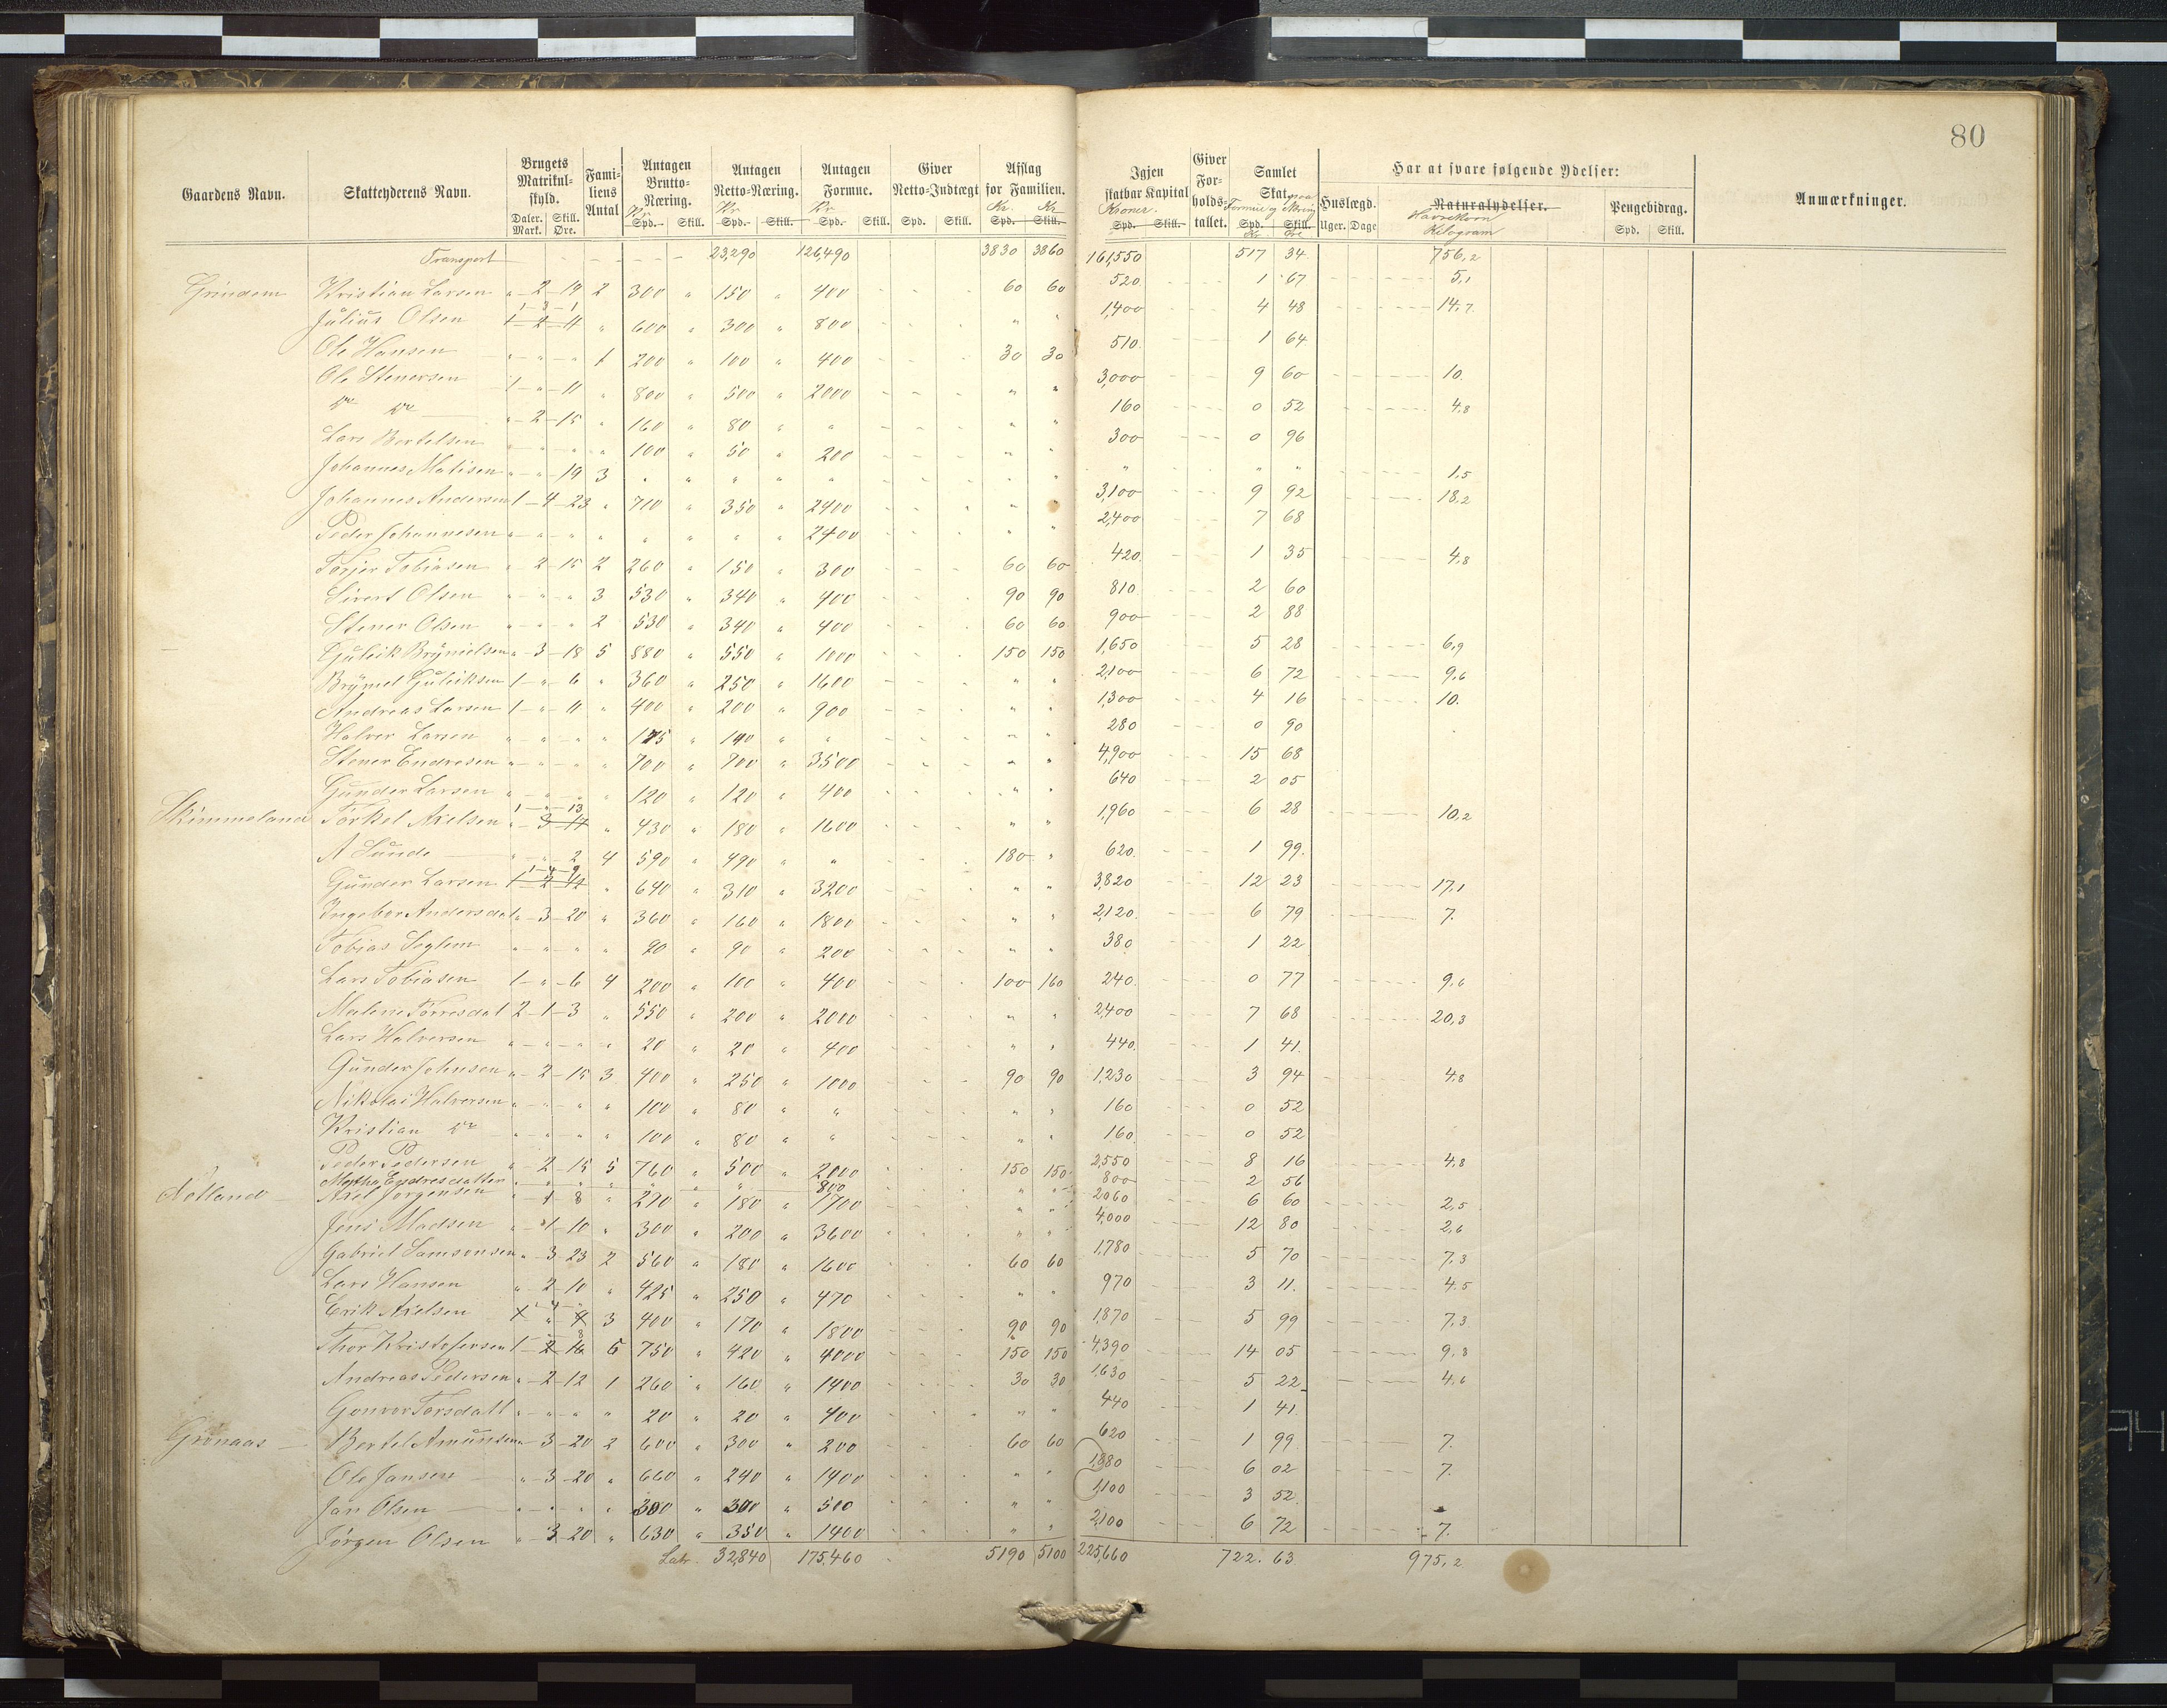 80
Gaardens Navn. Skatteyderens Navn. Brugets Matrikulskyld. Familiens Antal Antagen Brutto-Næring. Antagen Netto-Næring. Antagen Formue. Giver Netto-Indtægt Afslag for Familien. Igjen skatbar Kapital Giver Forholdstallet. Samlet Skat paa Formue og Næring Har at svare følgende Ydelser: Anmærkninger.
Huslægd. Naturalydelser. Havrekorn Kilogram Pengebidrag.
Daler. Mark. Skill. Øre. Kr Spd. Skill. Kr Spd. Skill. Kr Spd. Skill. Spd. Skill. Kr. Spd. Kr Skill. Kroner. Spd. Skill. Spd. Kr Skill. Øre Uger. Dage Spd. Skill.
Transport 23,290 126,490 3830 3860 161,550 517 34 756,2
Grindem Kristian Larsen " 2 19 2 300 " 150 " 400 60 60 520 1 67 5,1
Julius Olsen 1 3 1 1 2 11 " 600 " 300 " 800 " " 1,400 4 48 14,7
Ole Hansen " " " 1 200 " 100 " 400 30 30 510 1 64
Ole Stenersen 1 " 11 " 800 " 500 " 2000 " " 3,000 9 60 10.
do do " 2 15 " 160 " 80 " " " " 160 0 52 4,8
Lars Bertelsen " " " " 100 " 50 " 200 " " 300 0 96
Johannes Matisen " " 19 3 " " " " " " " " " " 1,5
Johannes Andersen 1 4 23 " 710 " 350 " 2400 " " 3,100 9 92 18,2
Peder Johannesen " " " " " " " " 2400 " " 2,400 7 68
Torjer Tobiasen " 2 15 2 260 " 150 " 300 60 60 420 1 35 4,8
Sivert Olsen " " " 3 530 " 340 " 400 90 90 810 2 60
Stener Olsen " " " 2 530 " 340 " 400 60 60 900 2 88
Guleik Brynielsen " 3 18 5 880 " 550 " 1000 150 150 1,650 5 28 6,9
Bryniel Guleiksen 1 " 6 " 360 " 250 " 1600 " " 2,100 6 72 9,6
Andreas Larsen 1 " 11 " 400 " 200 " 900 " " 1,300 4 16 10.
Halvor Larsen " " " " 175 " 140 " " " " 280 0 90
Stener Endresen " " " " 700 " 700 " 3500 " " 4,900 15 68
Gunder Larsen " " " " 120 " 120 " 400 " " 640 2 05
Skimmeland Torkel Axelsen 1 " 13 " 3 14 " 430 " 180 " 1600 " " 1,960 6 28 10,2
A Sunde " " 2 4 590 " 490 " " 180 " 620 1 99
Gunder Larsen 1 4 9 1 2 14 " 640 " 310 " 3200 " " 3,820 12 23 17,1
Ingebor Andersdat " 3 20 " 360 " 160 " 1800 " " 2,120 6 79 7.
Tobias Seglem " " " " 90 " 90 " 200 " " 380 1 22
Lars Tobiasen 1 " 6 4 200 " 100 " 400 100 160 240 0 77 9,6
Malene Torresdat 2 1 3 " 550 " 200 " 2000 " " 2,400 7 68 20,3
Lars Halversen " " " " 20 " 20 " 400 " " 440 1 41
Gunder Johnsen " 2 15 3 400 " 250 " 1000 90 90 1,230 3 94 4,8
Nikolai Halversen " " " " 100 " 80 " " " " 160 0 52
Kristian do " " " " 100 " 80 " " " " 160 0 52
Peder Pedersen " 2 15 5 760 " 500 " 2000 150 150 2,550 8 16 4,8
Martha Endresdatter " " " " " " " 800 800 2 56
Aatland Axel Jorgensen " 1 8 " 210 " 180 " 1700 " " 2060 6 60 2,5
Jens Madsen " 1 10 " 300 " 200 " 3600 " " 4,000 12 80 2,6
Gabriel Samsonsen " 3 23 2 560 " 180 " 1600 60 60 1,780 5 70 7,3
Lars Hansen " 2 10 " 425 " 250 " 470 " " 970 3 11 4,5
Erik Axelsen 3 400 " 170 " 1800 90 90 1,870 5 99 7,3
Thor Kristofersen 1 " 8 2 16 5 750 " 420 " 4000 150 150 4,390 14 05 9,8
Andreas Pedersen " 2 12 1 260 " 160 " 1400 30 30 1,630 5 22 4,6
Gonvor Torsdatt " " " " 20 " 20 " 400 " " 440 1 41
Grönaas Bertel Amundsen " 3 20 2 600 " 300 " 200 60 60 620 1 99 7.
Ole Jansen " 3 20 " 660 " 240 " 1400 " " 1,880 6 02 7.
Jan Olsen " " " " 300 " 300 " 500 " " 1,100 3 52
Jörgen Olsen " 3 20 " 630 " 350 " 1400 " " 2,100 6 72 7.
Latr. 32,840 175,460 5190 5100 225,660 722. 63 975,2